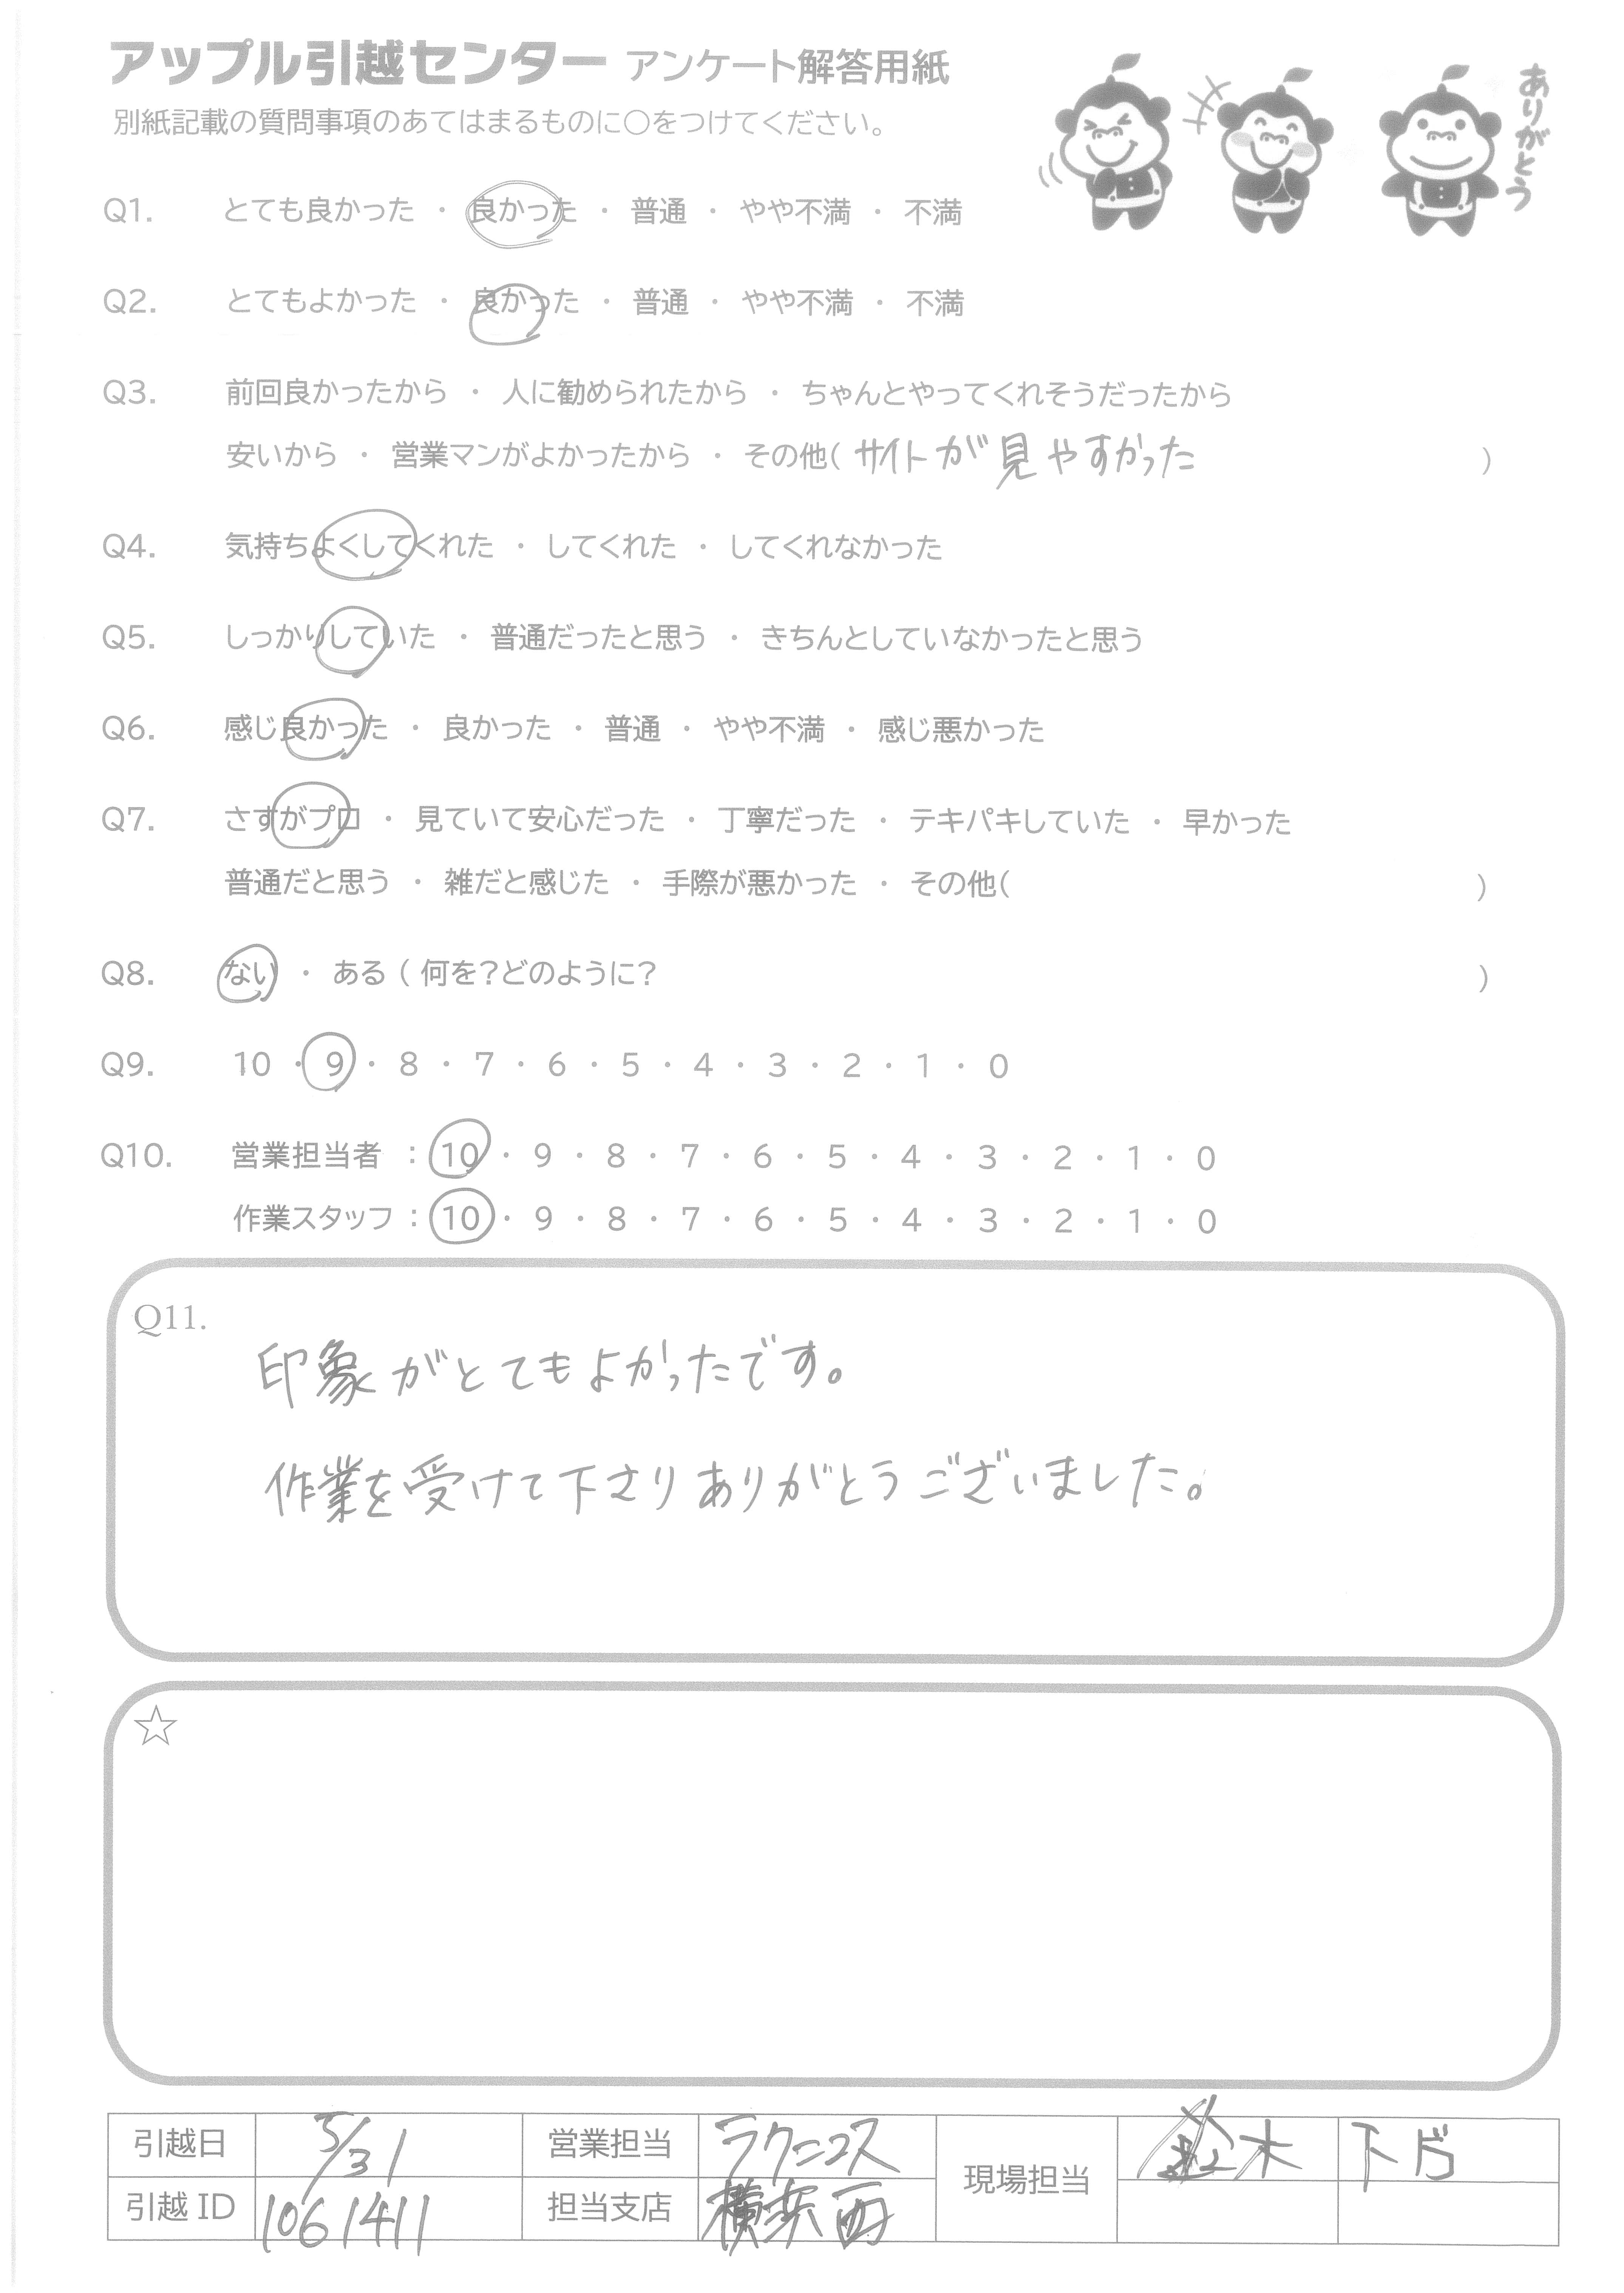 アップル引越センター アンケート解答用紙
別紙記載の質問事項のあてはまるものに○をつけてください。
ありがとう
Q1. とても良かった ・ 良かった ・ 普通 ・ やや不満 ・ 不満
Q2. とてもよかった ・ 良かった ・ 普通 ・ やや不満 ・ 不満
Q3. 前回良かったから ・ 人に勧められたから ・ ちゃんとやってくれそうだったから
安いから ・ 営業マンがよかったから ・ その他( サイトが見やすかった )
Q4. 気持ちよくしてくれた ・ してくれた ・ してくれなかった
Q5. しっかりしていた ・ 普通だったと思う ・ きちんとしていなかったと思う
Q6. 感じ良かった ・ 良かった ・ 普通 ・ やや不満 ・ 感じ悪かった
Q7. さすがプロ ・ 見ていて安心だった ・ 丁寧だった ・ テキパキしていた ・ 早かった
普通だと思う ・ 雑だと感じた ・ 手際が悪かった ・ その他( )
Q8. ない ・ ある ( 何を?どのように? )
Q9. 10 ・ 9 ・ 8 ・ 7 ・ 6 ・ 5 ・ 4 ・ 3 ・ 2 ・ 1 ・ 0
Q10. 営業担当者 : 10 ・ 9 ・ 8 ・ 7 ・ 6 ・ 5 ・ 4 ・ 3 ・ 2 ・ 1 ・ 0
作業スタッフ : 10 ・ 9 ・ 8 ・ 7 ・ 6 ・ 5 ・ 4 ・ 3 ・ 2 ・ 1 ・ 0
Q11.
印象がとてもよかったです。
作業を受けて下さりありがとうございました。
☆
引越日 5/31 営業担当 ラクニコス 現場担当 木
引越 ID 1061411 担当支店 横浜西